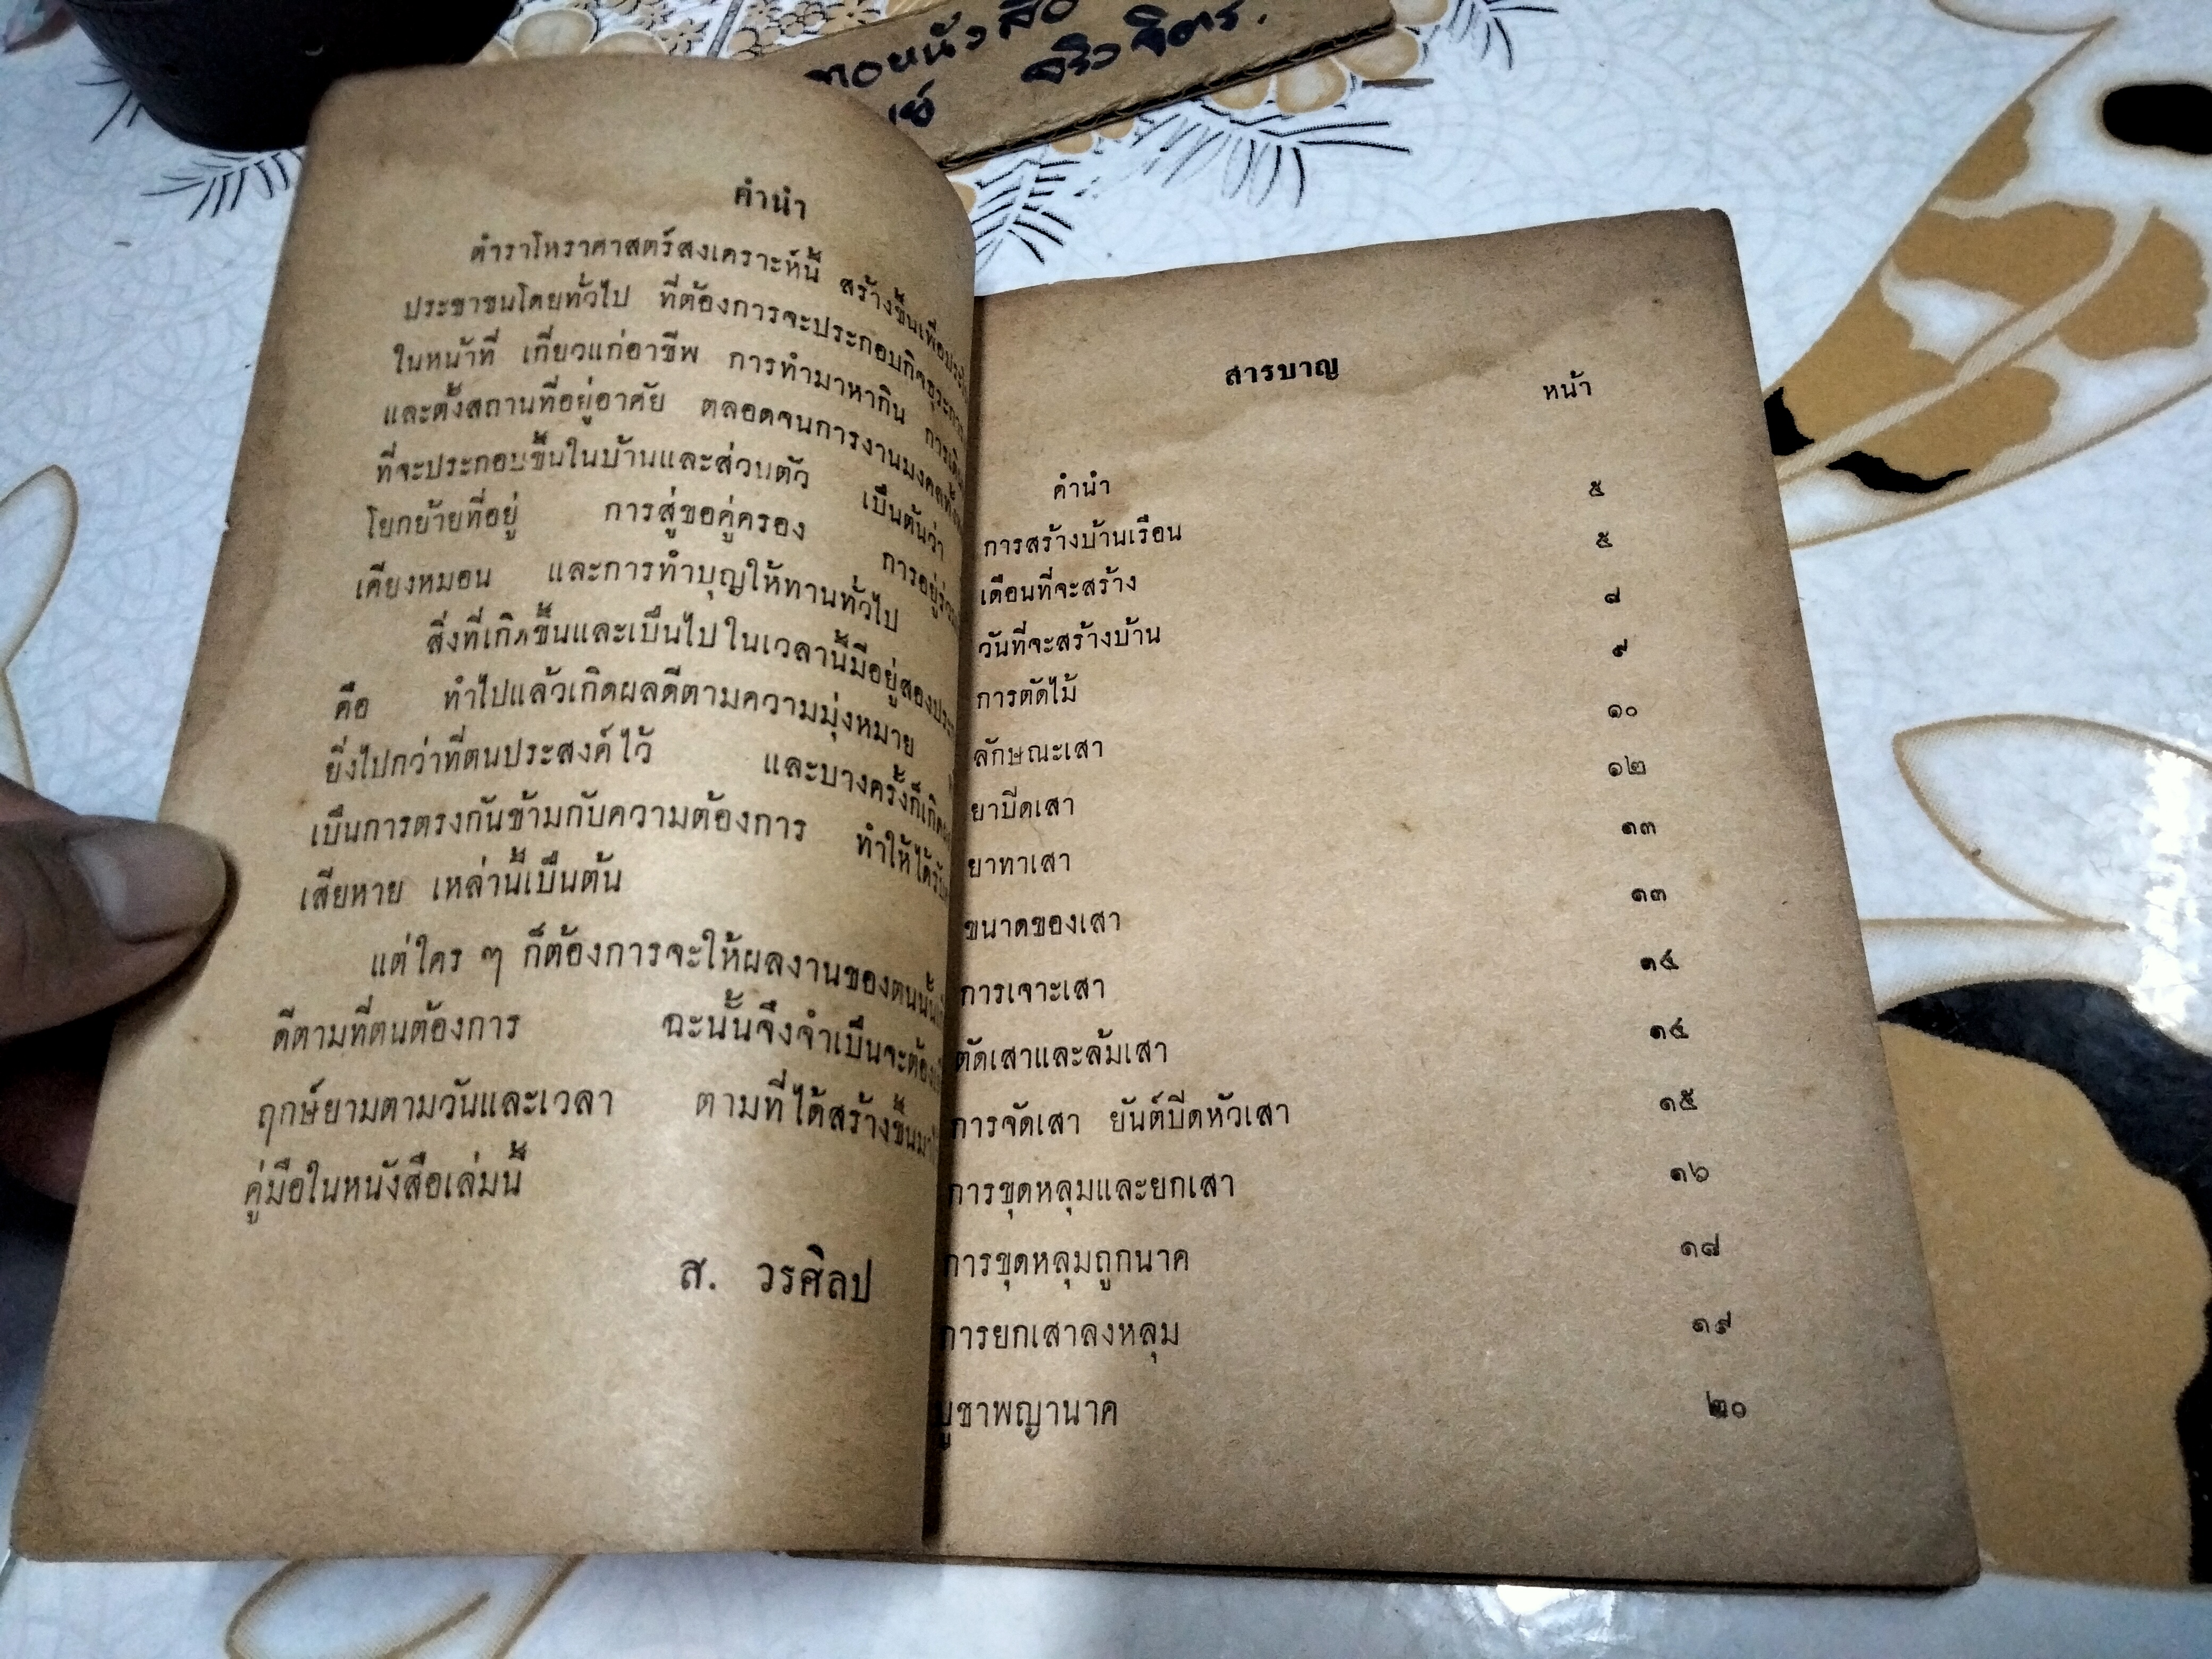 ทอยหนังสือ
จริง จิตร.
คำนำ
ตำราโหราศาสตร์สงเคราะห์นี้ สร้างขึ้นเพื่อประโ
ประชาชนโดยทั่วไป ที่ต้องการจะประกอบกิจธุระการ
ในหน้าที่ เกี่ยวแก่อาชีพ การทำมาหากิน การเดิน
และตั้งสถานที่อยู่อาศัย ตลอดจนการงานมงคลทั้ง
ที่จะประกอบขึ้นในบ้านและส่วนตัว เป็นต้นว่า
โยกย้ายที่อยู่ การสู่ขอคู่ครอง การอยู่ร่วม
เคียงหมอน และการทำบุญให้ทานทั่วไป
สิ่งที่เกิดขึ้นและเป็นไปในเวลานี้มีอยู่สองประ
คือ ทำไปแล้วเกิดผลดีตามความมุ่งหมาย
ยิ่งไปกว่าที่ตนประสงค์ไว้ และบางครั้งก็เกิด
เป็นการตรงกันข้ามกับความต้องการ ทำให้ได้รับ
เสียหาย เหล่านี้เป็นต้น
แต่ใคร ๆ ก็ต้องการจะให้ผลงานของตนนั้น
ดีตามที่ตนต้องการ ฉะนั้นจึงจำเป็นจะต้อง
ฤกษ์ยามตามวันและเวลา ตามที่ได้สร้างขึ้นมา
คู่มือในหนังสือเล่มนี้
ส. วรศิลป
สารบาญ
หน้า
คำนำ ๕
การสร้างบ้านเรือน ๕
เดือนที่จะสร้าง ๘
วันที่จะสร้างบ้าน ๙
การตัดไม้ ๑๐
ลักษณะเสา ๑๒
ยาปิดเสา ๑๓
ยาทาเสา ๑๓
ขนาดของเสา ๑๔
การเจาะเสา ๑๔
ตัดเสาและล้มเสา ๑๕
การจัดเสา ยันต์ปิดหัวเสา ๑๖
การขุดหลุมและยกเสา ๑๘
การขุดหลุมถูกนาค ๑๙
การยกเสาลงหลุม ๒๐
บูชาพญานาค